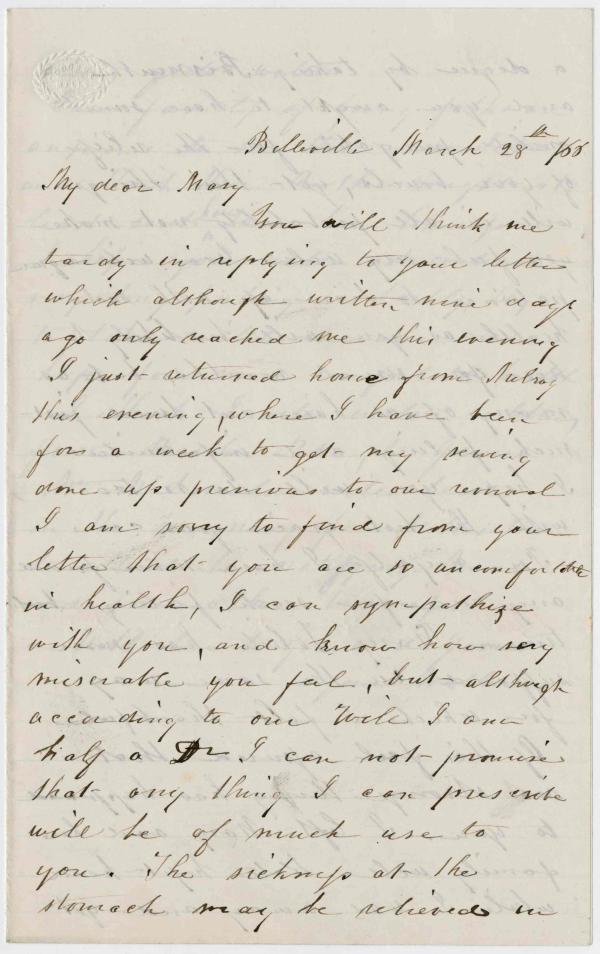 Belleville March 28th /66
My dear Mary
You will think me
tardy in replying to your letter
which although written nine days
ago only reached me this evening
I just returned home from
this evening, where I have been
for a week to get my sewing
done up previous to our removal
I am sorry to find from your
letter that you are so uncomfortable
in health, I can sympathize
with you, and know how very
miserable you feel, but although
according to our Will I am
half a Dr I can not promise
that any thing I can prescribe
will be of much use to
you. The sickness at the
stomach may be relieved in